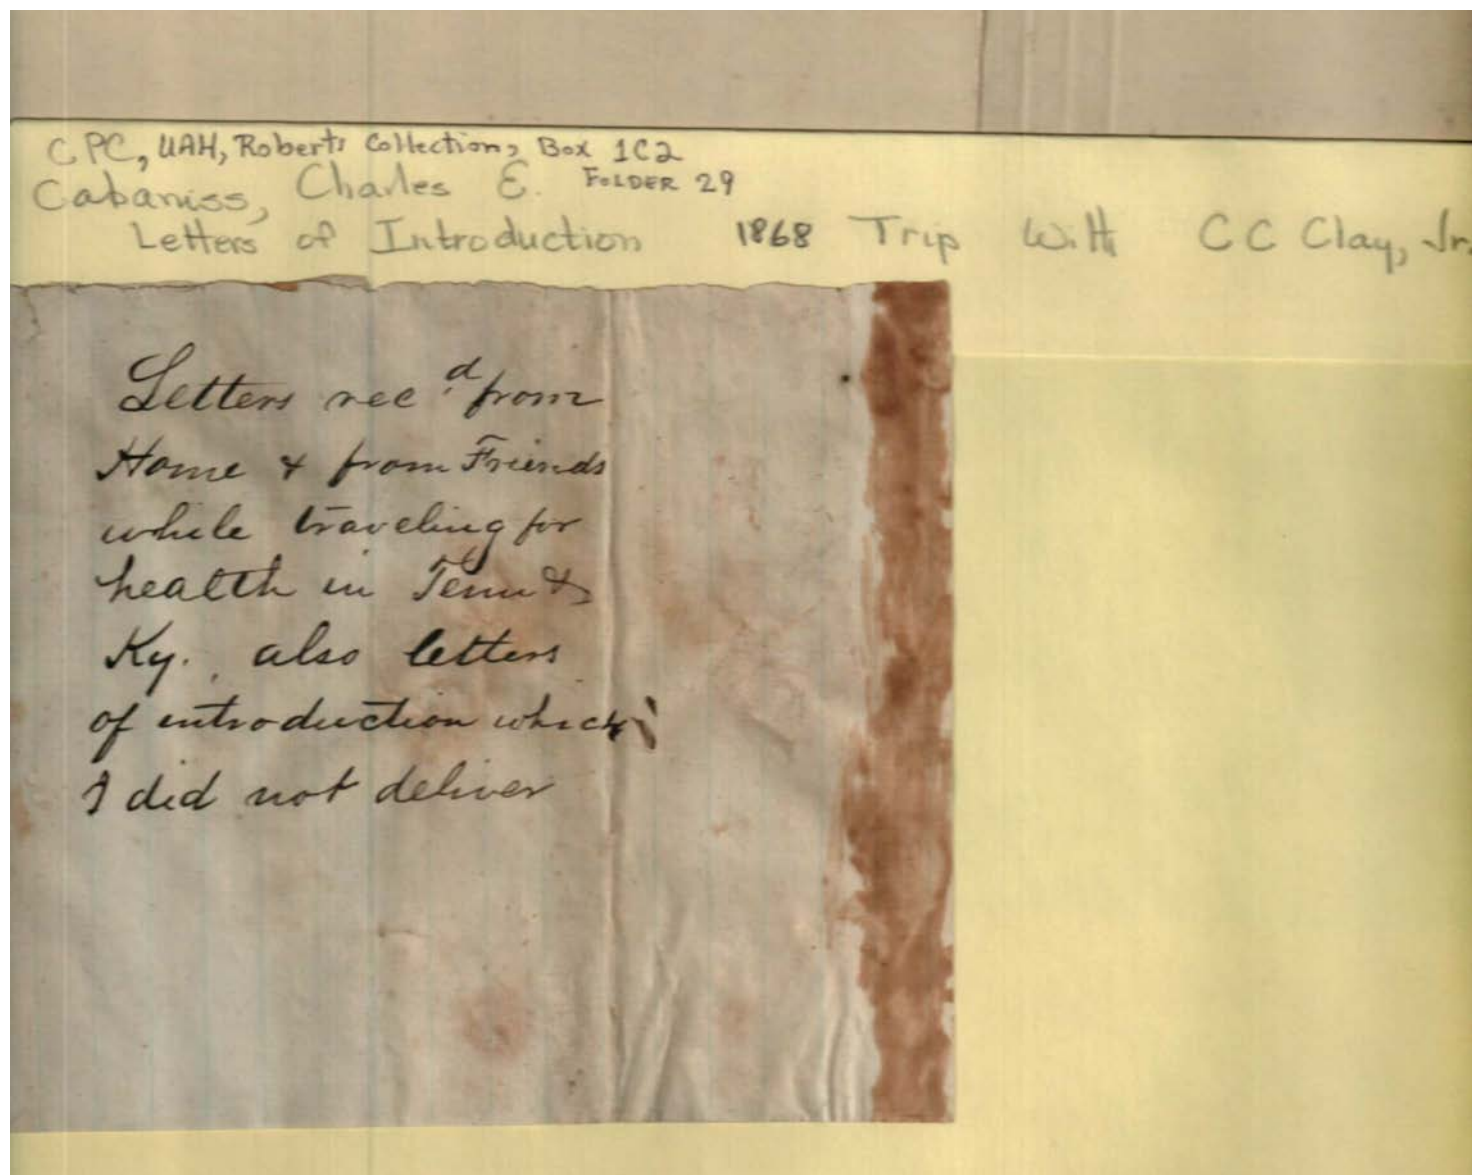 CPC, UAH, Roberts Collection, Box 1C2
Cabaniss, Charles E. FOLDER 29
Letters of Introduction 1868 Trip With C C Clay, Jr.
Letters rec'd from
Home & from Friends
while traveling for
health in Tenn &
Ky. also letters
of introduction which
I did not deliver